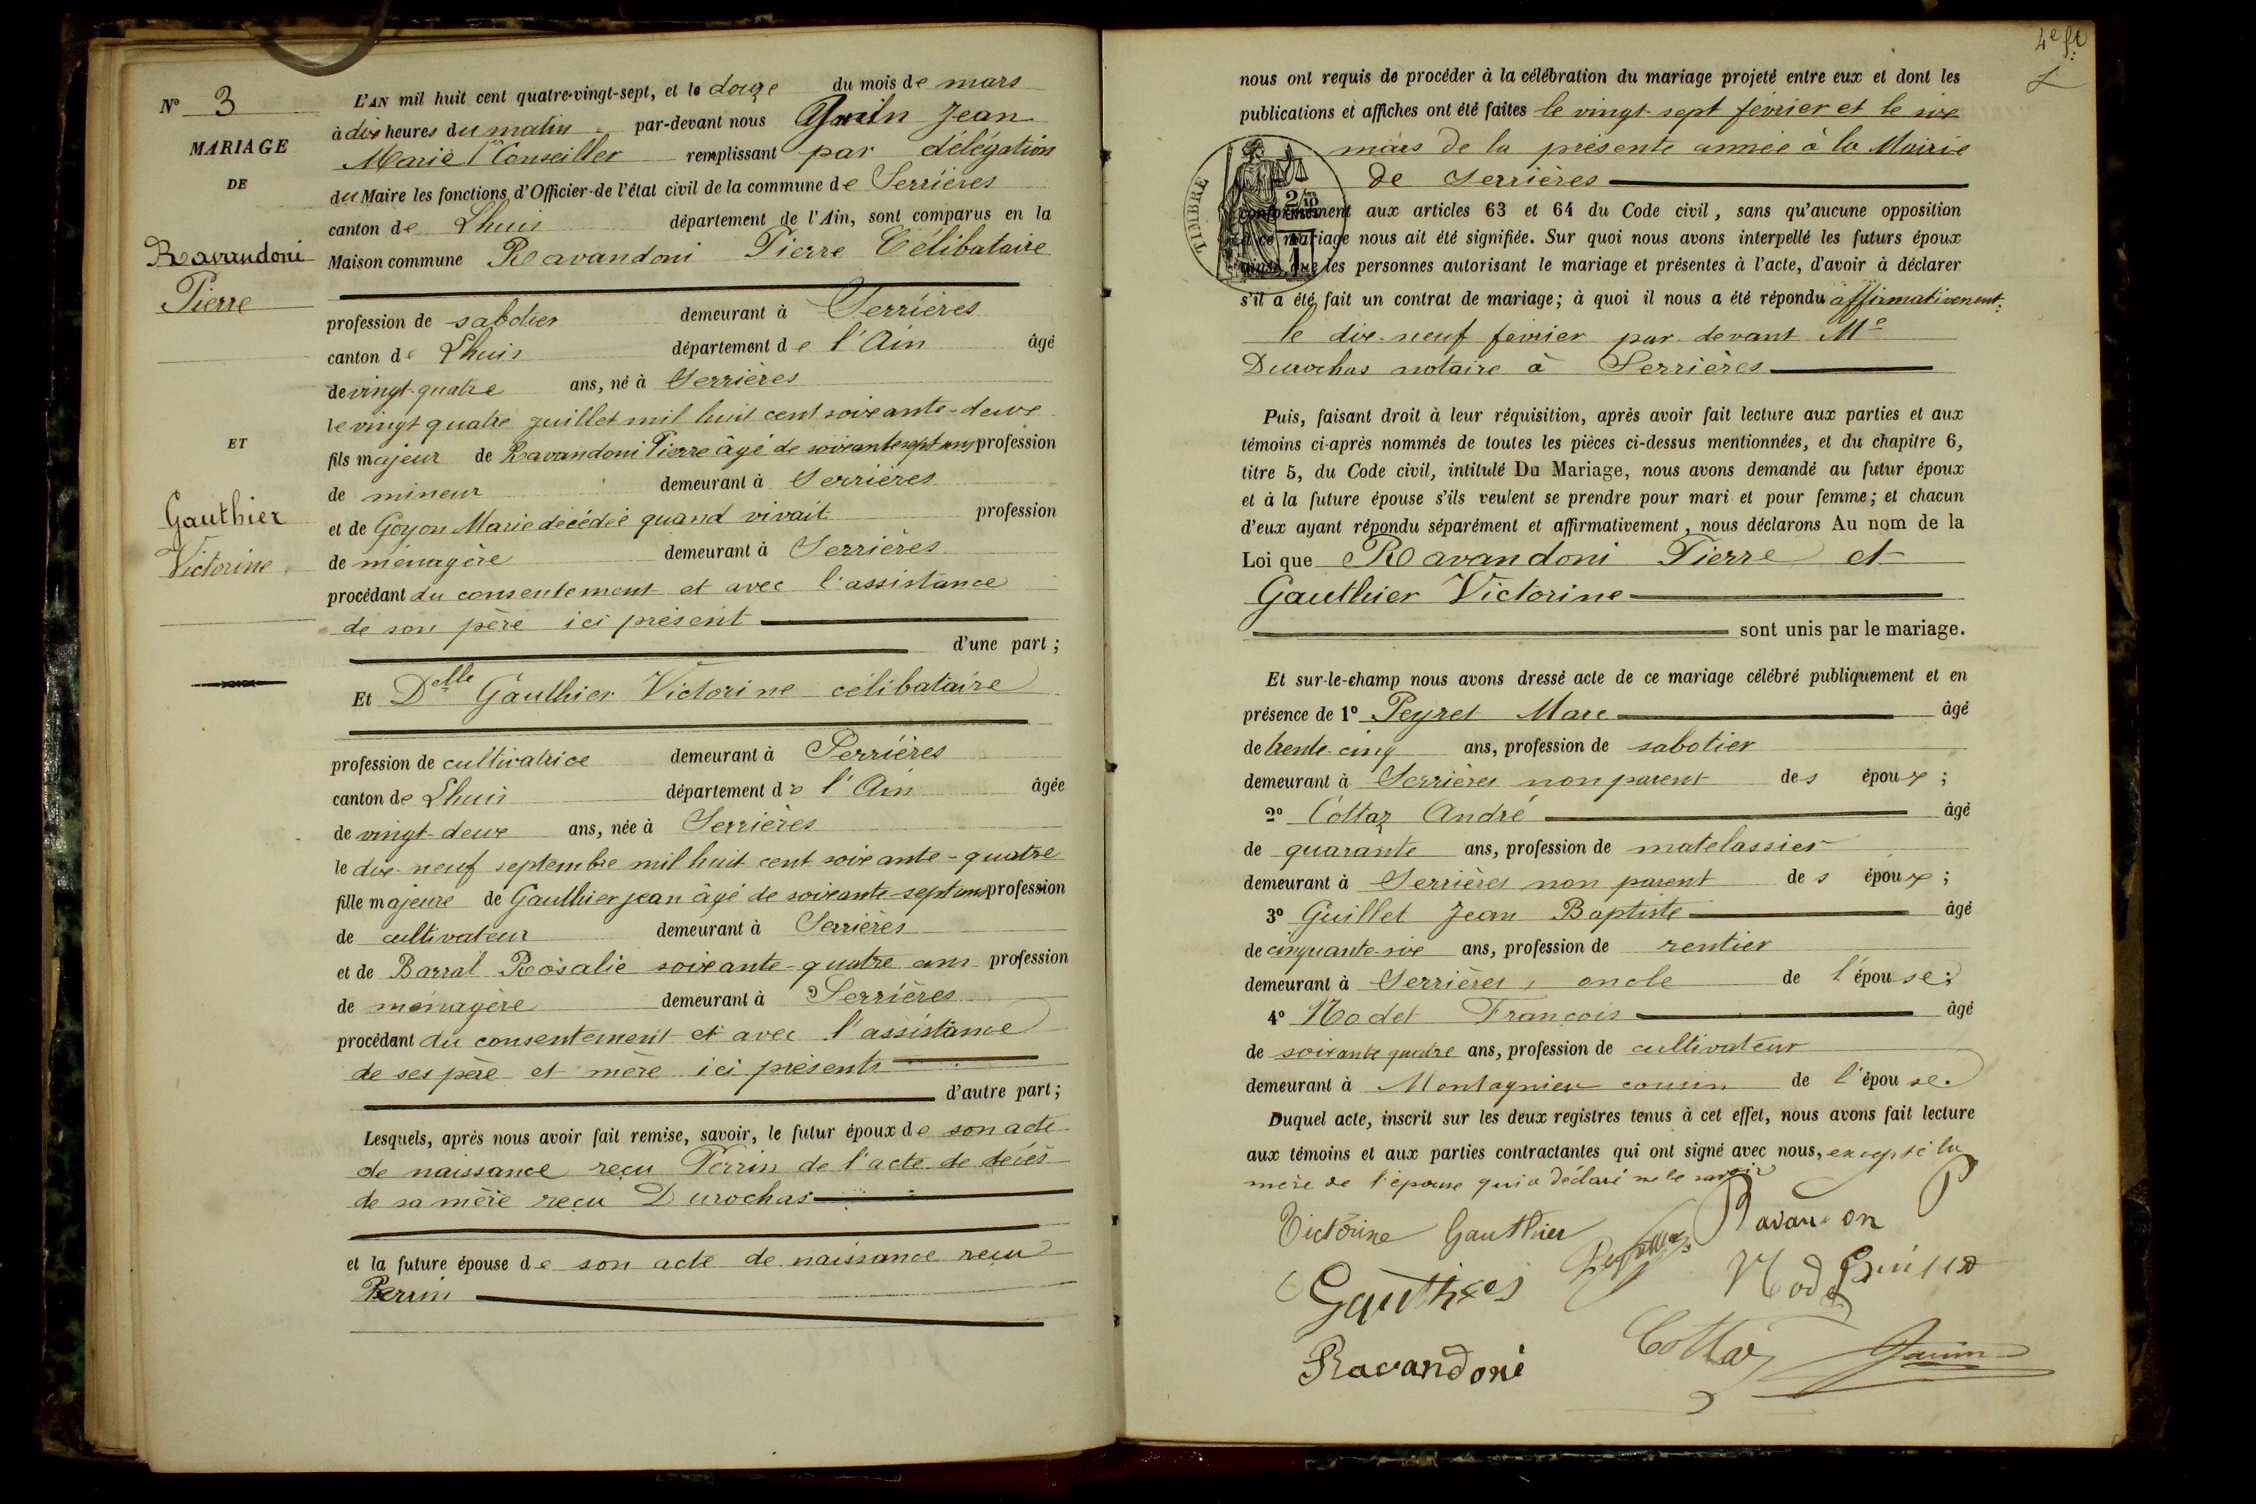 N° 3
MARIAGE
DE
Ravandoni
Pierre
ET
Gauthier
Victorine
L'AN mil huit cent quatre-vingt-sept, et le douze du mois de mars
à dix heures du matin par-devant nous Jean
Marie 1er Conseiller remplissant par délégation
du Maire les fonctions d'Officier de l'état civil de la commune de Serrières
canton de Lhuis département de l'Ain, sont comparus en la
Maison commune Ravandoni Pierre Célibataire
profession de sabotier demeurant à Serrières
canton de Lhuis département de l'Ain âgé
de vingt-quatre ans, né à Serrières
le vingt quatre juillet mil huit cent soixante-deux
fils majeur de Ravandoni Pierre âgé de soixante sept ans profession
de mineur demeurant à Serrières
et de Goyon Marie décédée quand vivait profession
de ménagère demeurant à Serrières
procédant du consentement et avec l'assistance
de son père ici présent
d'une part ;
Et Delle Gauthier Victorine célibataire
profession de cultivatrice demeurant à Serrières
canton de Lhuis département de l'Ain âgée
de vingt-deux ans, née à Serrières
le dix-neuf septembre mil huit cent soixante-quatre
fille majeure de Gauthier jean âgé de soixante-sept ans profession
de cultivateur demeurant à Serrières
et de Barral Rosalie soixante-quatre ans profession
de ménagère demeurant à Serrières
procédant du consentement et avec l'assistance
de ses père et mère ici présents
d'autre part ;
Lesquels, après nous avoir fait remise, savoir, le futur époux de son acte
de naissance reçu Perrin de l'acte de décès
de sa mère reçu Durochas
et la future épouse de son acte de naissance reçu
Perrin
4e ft
nous ont requis de procéder à la célébration du mariage projeté entre eux et dont les
publications et affiches ont été faites le vingt-sept février et le six
mars de la présente année à la Mairie
de Serrières
TIMBRE
conformément aux articles 63 et 64 du Code civil, sans qu'aucune opposition
à ce mariage nous ait été signifiée. Sur quoi nous avons interpellé les futurs époux
ainsi que les personnes autorisant le mariage et présentes à l'acte, d'avoir à déclarer
s'il a été fait un contrat de mariage ; à quoi il nous a été répondu affirmativement.
le dix-neuf février par devant Me
Durochas notaire à Serrières
Puis, faisant droit à leur réquisition, après avoir fait lecture aux parties et aux
témoins ci-après nommés de toutes les pièces ci-dessus mentionnées, et du chapitre 6,
titre 5, du Code civil, intitulé Du Mariage, nous avons demandé au futur époux
et à la future épouse s'ils veulent se prendre pour mari et pour femme ; et chacun
d'eux ayant répondu séparément et affirmativement, nous déclarons Au nom de la
Loi que Ravandoni Pierre et
Gauthier Victorine
sont unis par le mariage.
Et sur-le-champ nous avons dressé acte de ce mariage célébré publiquement et en
présence de 1° Peyret Marc âgé
de trente-cinq ans, profession de sabotier
demeurant à Serrières non parent des époux ;
2° Cottaz André âgé
de quarante ans, profession de matelassier
demeurant à Serrières non parent des époux ;
3° Guillet Jean Baptiste âgé
de cinquante-six ans, profession de rentier
demeurant à Serrières, oncle de l'épouse ;
4° Nodet François âgé
de soixante quatre ans, profession de cultivateur
demeurant à Montagnieu cousin de l'épouse.
Duquel acte, inscrit sur les deux registres tenus à cet effet, nous avons fait lecture
aux témoins et aux parties contractantes qui ont signé avec nous, excepté la
mère de l'épouse qui a déclaré ne le savoir
Victorine Gauthier
Gauthier
Nodet
Ravandoni
Cottaz